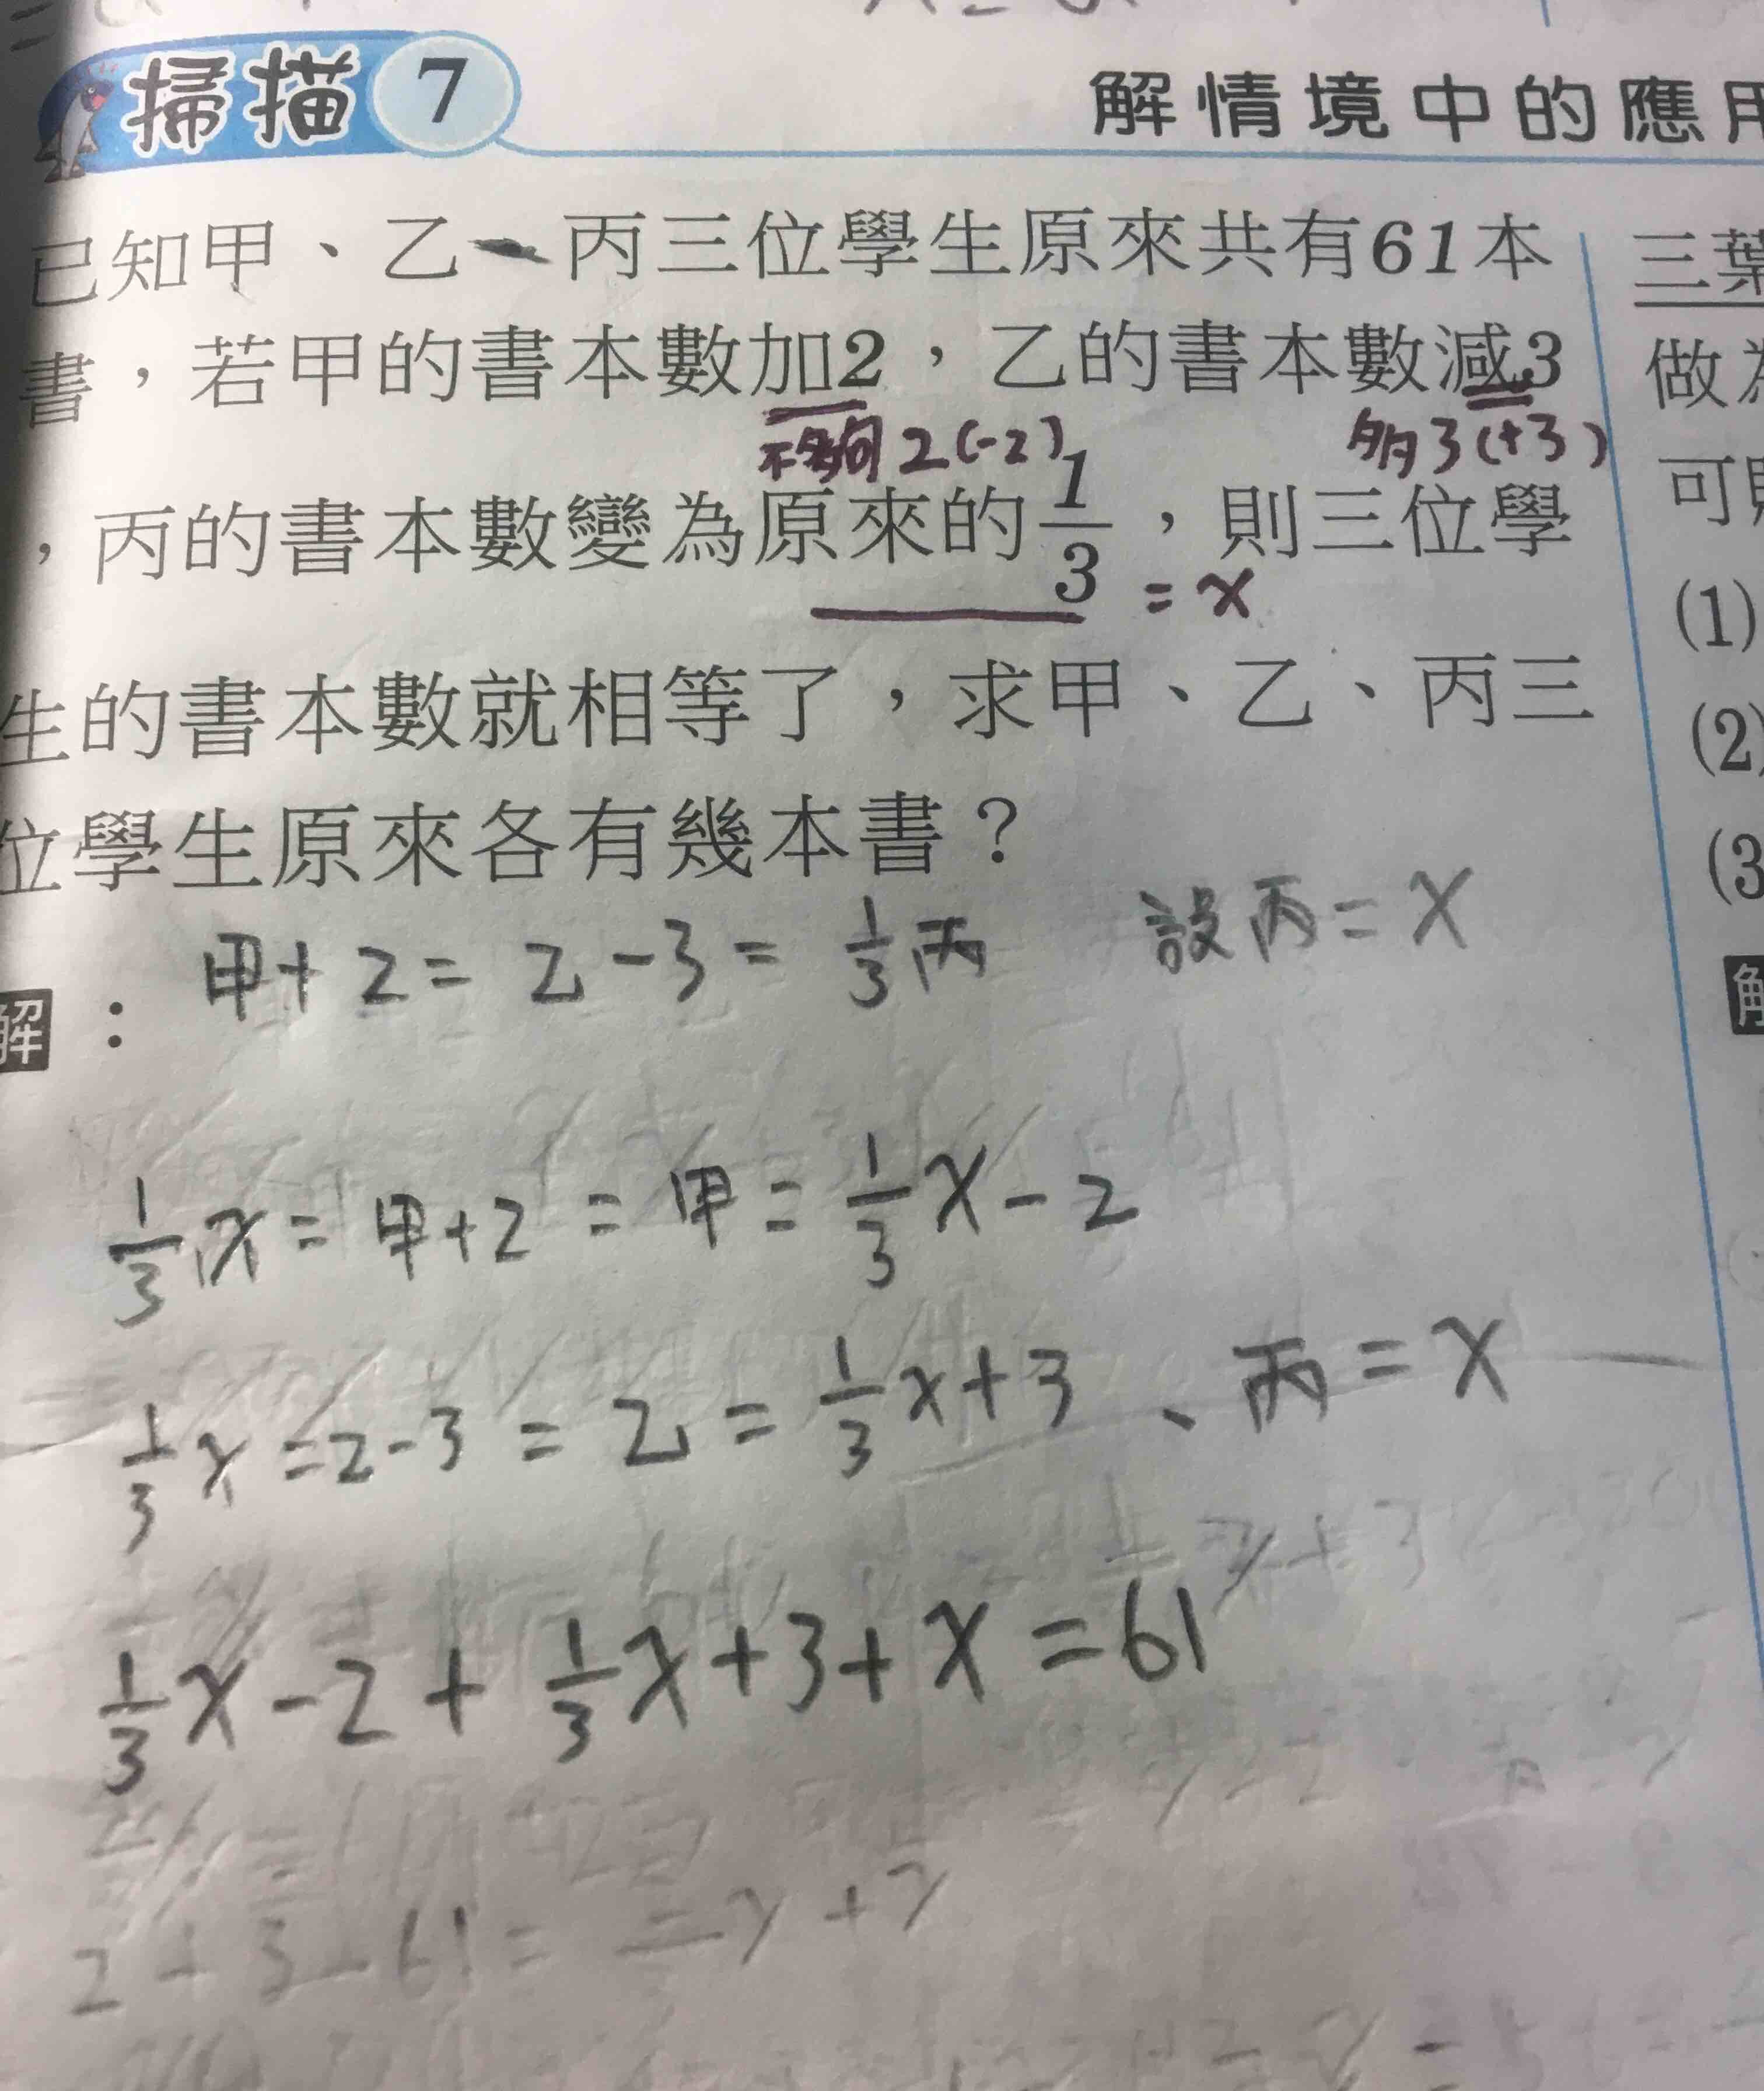 掃描 7 解情境中的應用
已知甲、乙、丙三位學生原來共有61本
書，若甲的書本數加2，乙的書本數減3
不夠2(-2) 多3(+3)
，丙的書本數變為原來的1/3，則三位學
= x
生的書本數就相等了，求甲、乙、丙三
位學生原來各有幾本書？
甲+2=乙-3=1/3丙 設丙=x
解：
1/3x=甲+2=甲=1/3x-2
1/3x=乙-3=乙=1/3x+3、丙=x
1/3x-2+1/3x+3+x=61
三葉
做
可
(1)
(2)
(3
解